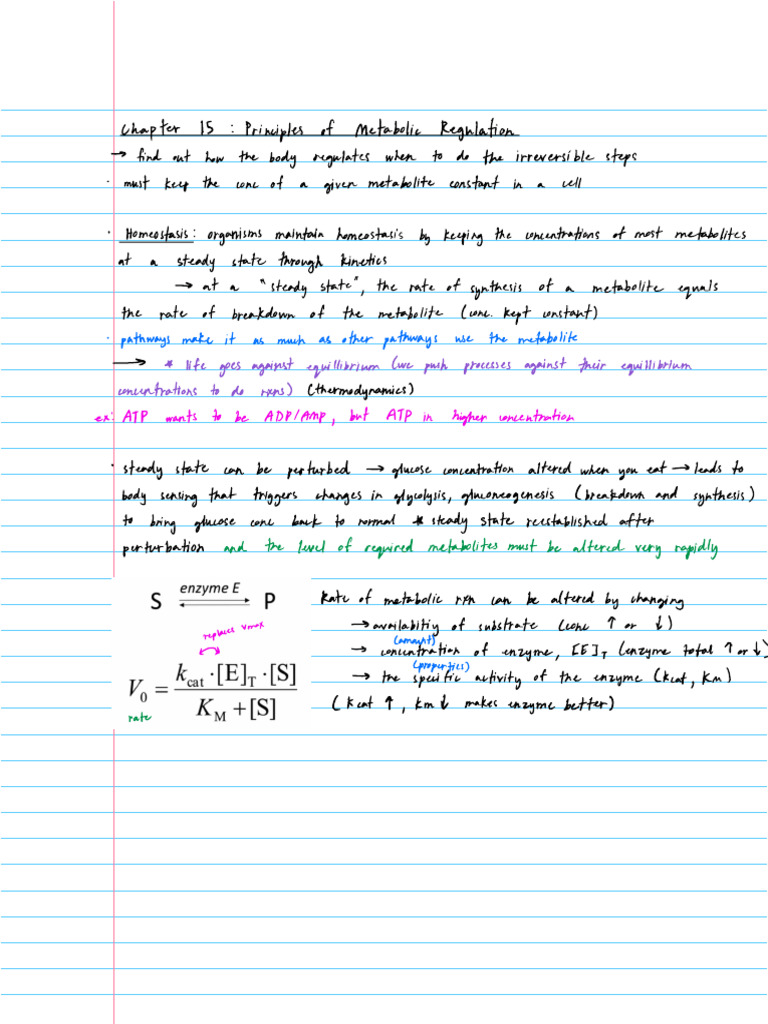 Chapter 15 : Principles of Metabolic Regulation
→ find out how the body regulates when to do the irreversible steps
· must keep the conc of a given metabolite constant in a cell
· Homeostasis: organisms maintain homeostasis by keeping the concentrations of most metabolites
at a steady state through kinetics
→ at a "steady state", the rate of synthesis of a metabolite equals
the rate of breakdown of the metabolite (conc. kept constant)
· pathways make it as much as other pathways use the metabolite
→ * life goes against equillibrium (we push processes against their equillibrium
concentrations to do rxns) (thermodynamics)
ex: ATP wants to be ADP/AMP, but ATP in higher concentration
· steady state can be perturbed → glucose concentration altered when you eat → leads to
body sensing that triggers changes in glycolysis, gluconeogenesis (breakdown and synthesis)
to bring glucose conc back to normal * steady state reestablished after
perturbation and the level of required metabolites must be altered very rapidly
S enzyme E ⇌ P
replaces vmax
V₀ = k_cat · [E]_T · [S] / K_M + [S]
rate
Rate of metabolic rxn can be altered by changing
→ availabiltiy of substrate (conc ↑ or ↓)
(amount)
→ concentration of enzyme, [E]_T (enzyme total ↑ or ↓)
(properties)
→ the specific activity of the enzyme (kcat, KM)
(kcat ↑, km ↓ makes enzyme better)